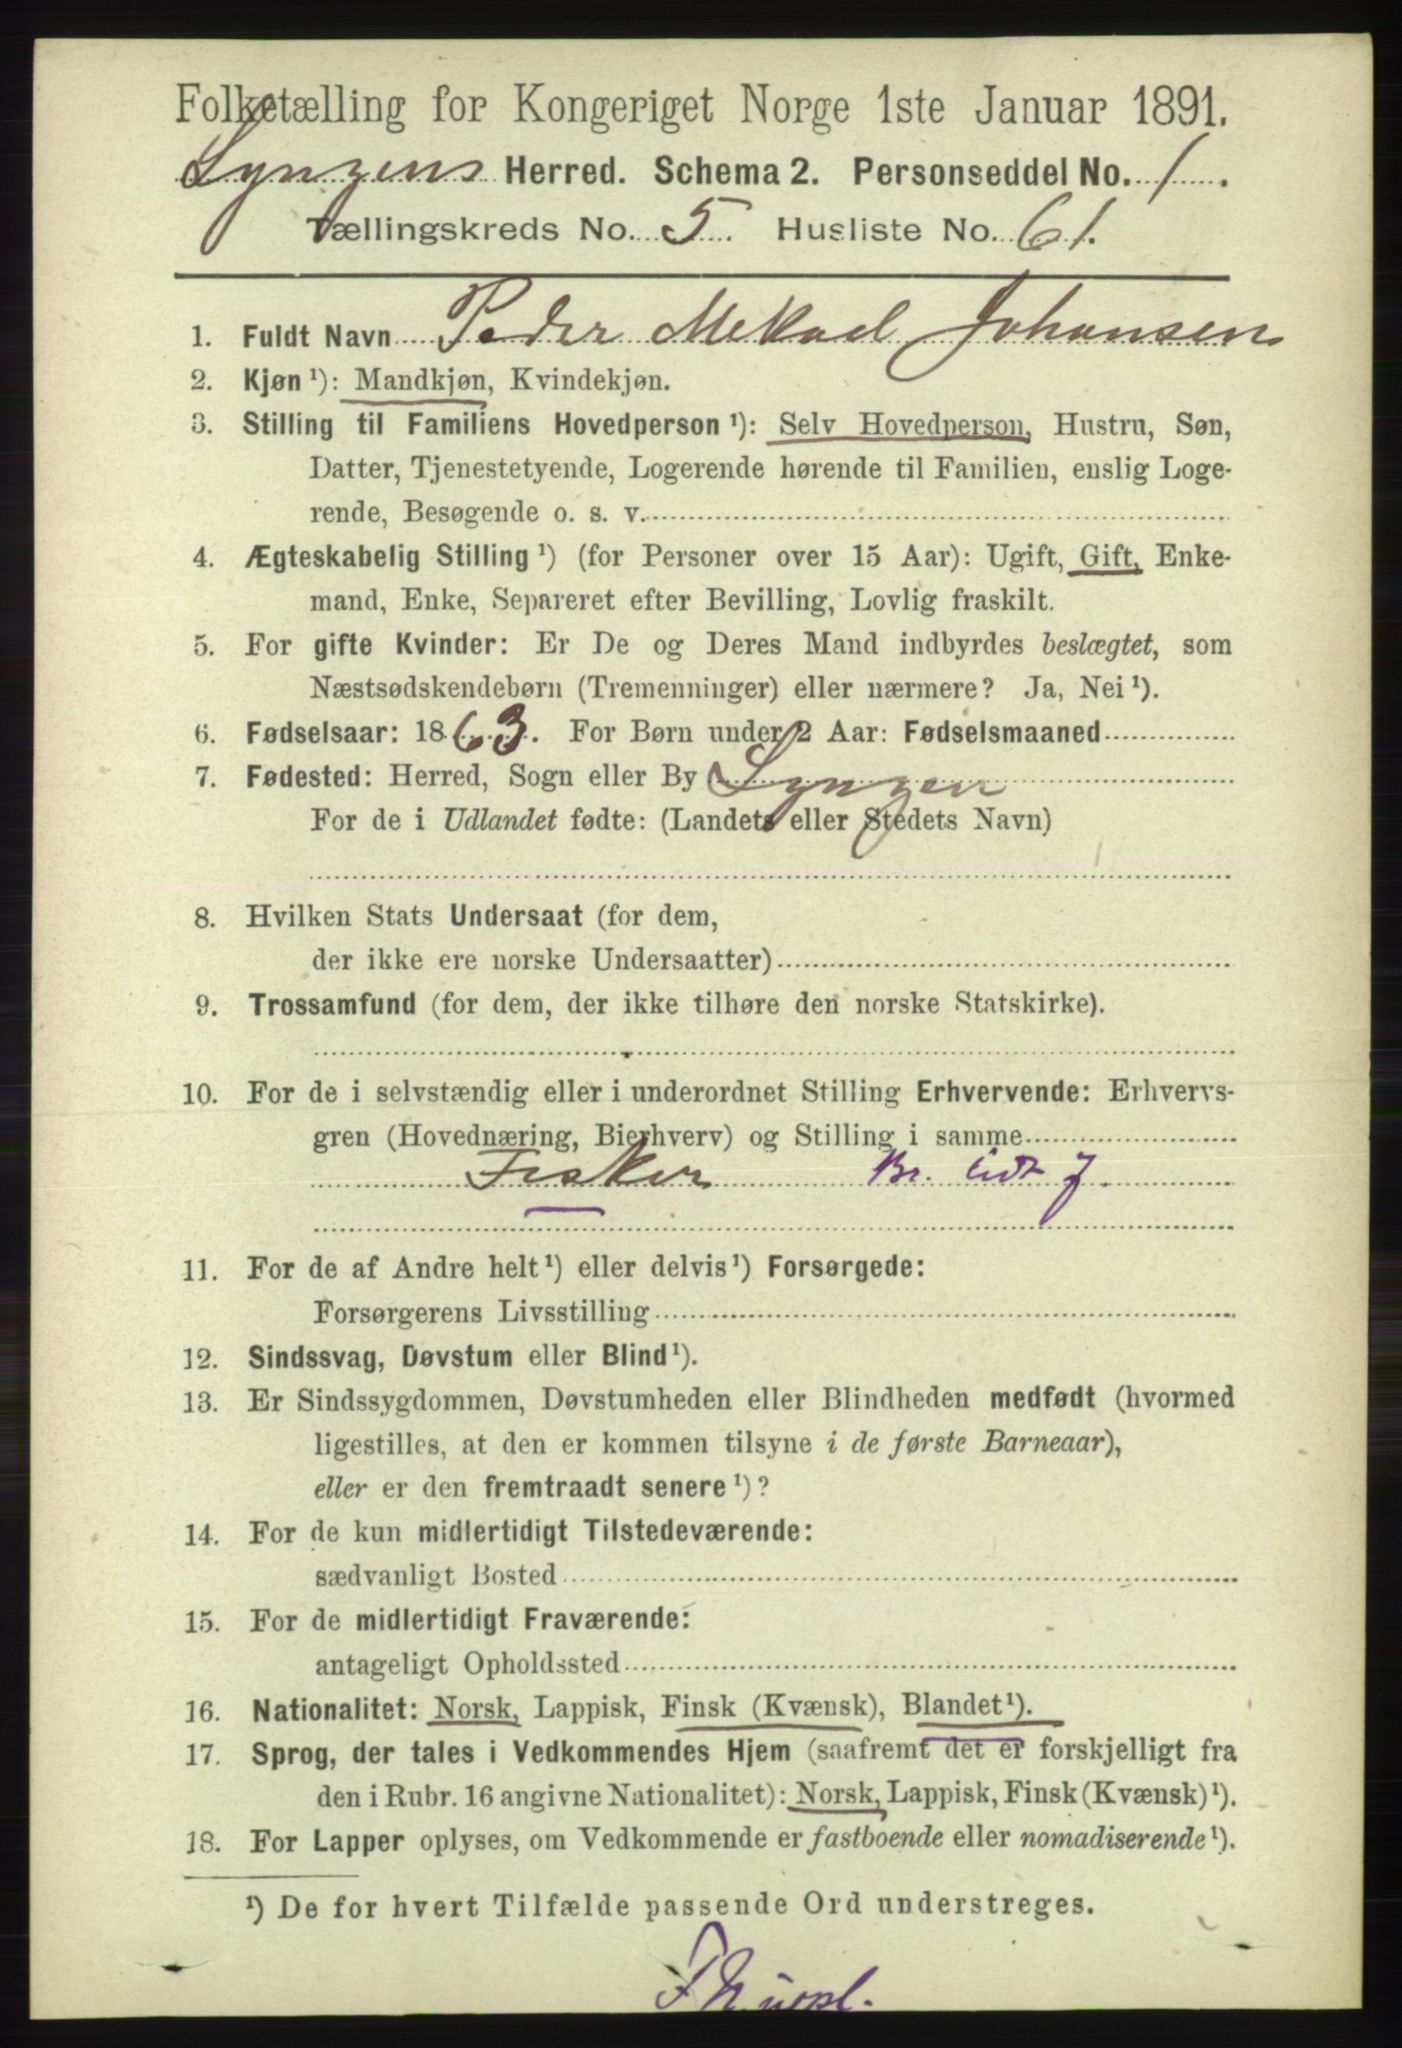 Folketælling for Kongeriget Norge 1ste Januar 1891.
Lyngens Herred. Schema 2. Personseddel No. 1.
Tællingskreds No. 5. Husliste No. 61.
1. Fuldt Navn Peder Mekael Johansen
2. Kjøn ¹): Mandkjøn, Kvindekjøn.
3. Stilling til Familiens Hovedperson ¹): Selv Hovedperson, Hustru, Søn,
Datter, Tjenestetyende, Logerende hørende til Familien, enslig Loge-
rende, Besøgende o. s. v.
4. Ægteskabelig Stilling ¹) (for Personer over 15 Aar): Ugift, Gift, Enke-
mand, Enke, Separeret efter Bevilling, Lovlig fraskilt.
5. For gifte Kvinder: Er De og Deres Mand indbyrdes beslægtet, som
Næstsødskendebørn (Tremenninger) eller nærmere? Ja, Nei ¹).
6. Fødselsaar: 1863. For Børn under 2 Aar: Fødselsmaaned
7. Fødested: Herred, Sogn eller By Lyngen
For de i Udlandet fødte: (Landets eller Stedets Navn)
8. Hvilken Stats Undersaat (for dem,
der ikke ere norske Undersaatter)
9. Trossamfund (for dem, der ikke tilhøre den norske Statskirke).
10. For de i selvstændig eller i underordnet Stilling Erhvervende: Erhvervs-
gren (Hovednæring, Bierhverv) og Stilling i samme
Fisker Br.
11. For de af Andre helt ¹) eller delvis ¹) Forsørgede:
Forsørgerens Livsstilling
12. Sindssvag, Døvstum eller Blind ¹).
13. Er Sindssygdommen, Døvstumheden eller Blindheden medfødt (hvormed
ligestilles, at den er kommen tilsyne i de første Barneaar),
eller er den fremtraadt senere ¹)?
14. For de kun midlertidigt Tilstedeværende:
sædvanligt Bosted
15. For de midlertidigt Fraværende:
antageligt Opholdssted
16. Nationalitet: Norsk, Lappisk, Finsk (Kvænsk), Blandet ¹).
17. Sprog, der tales i Vedkommendes Hjem (saafremt det er forskjelligt fra
den i Rubr. 16 angivne Nationalitet): Norsk, Lappisk, Finsk (Kvænsk) ¹).
18. For Lapper oplyses, om Vedkommende er fastboende eller nomadiserende ¹).
¹) De for hvert Tilfælde passende Ord understreges.